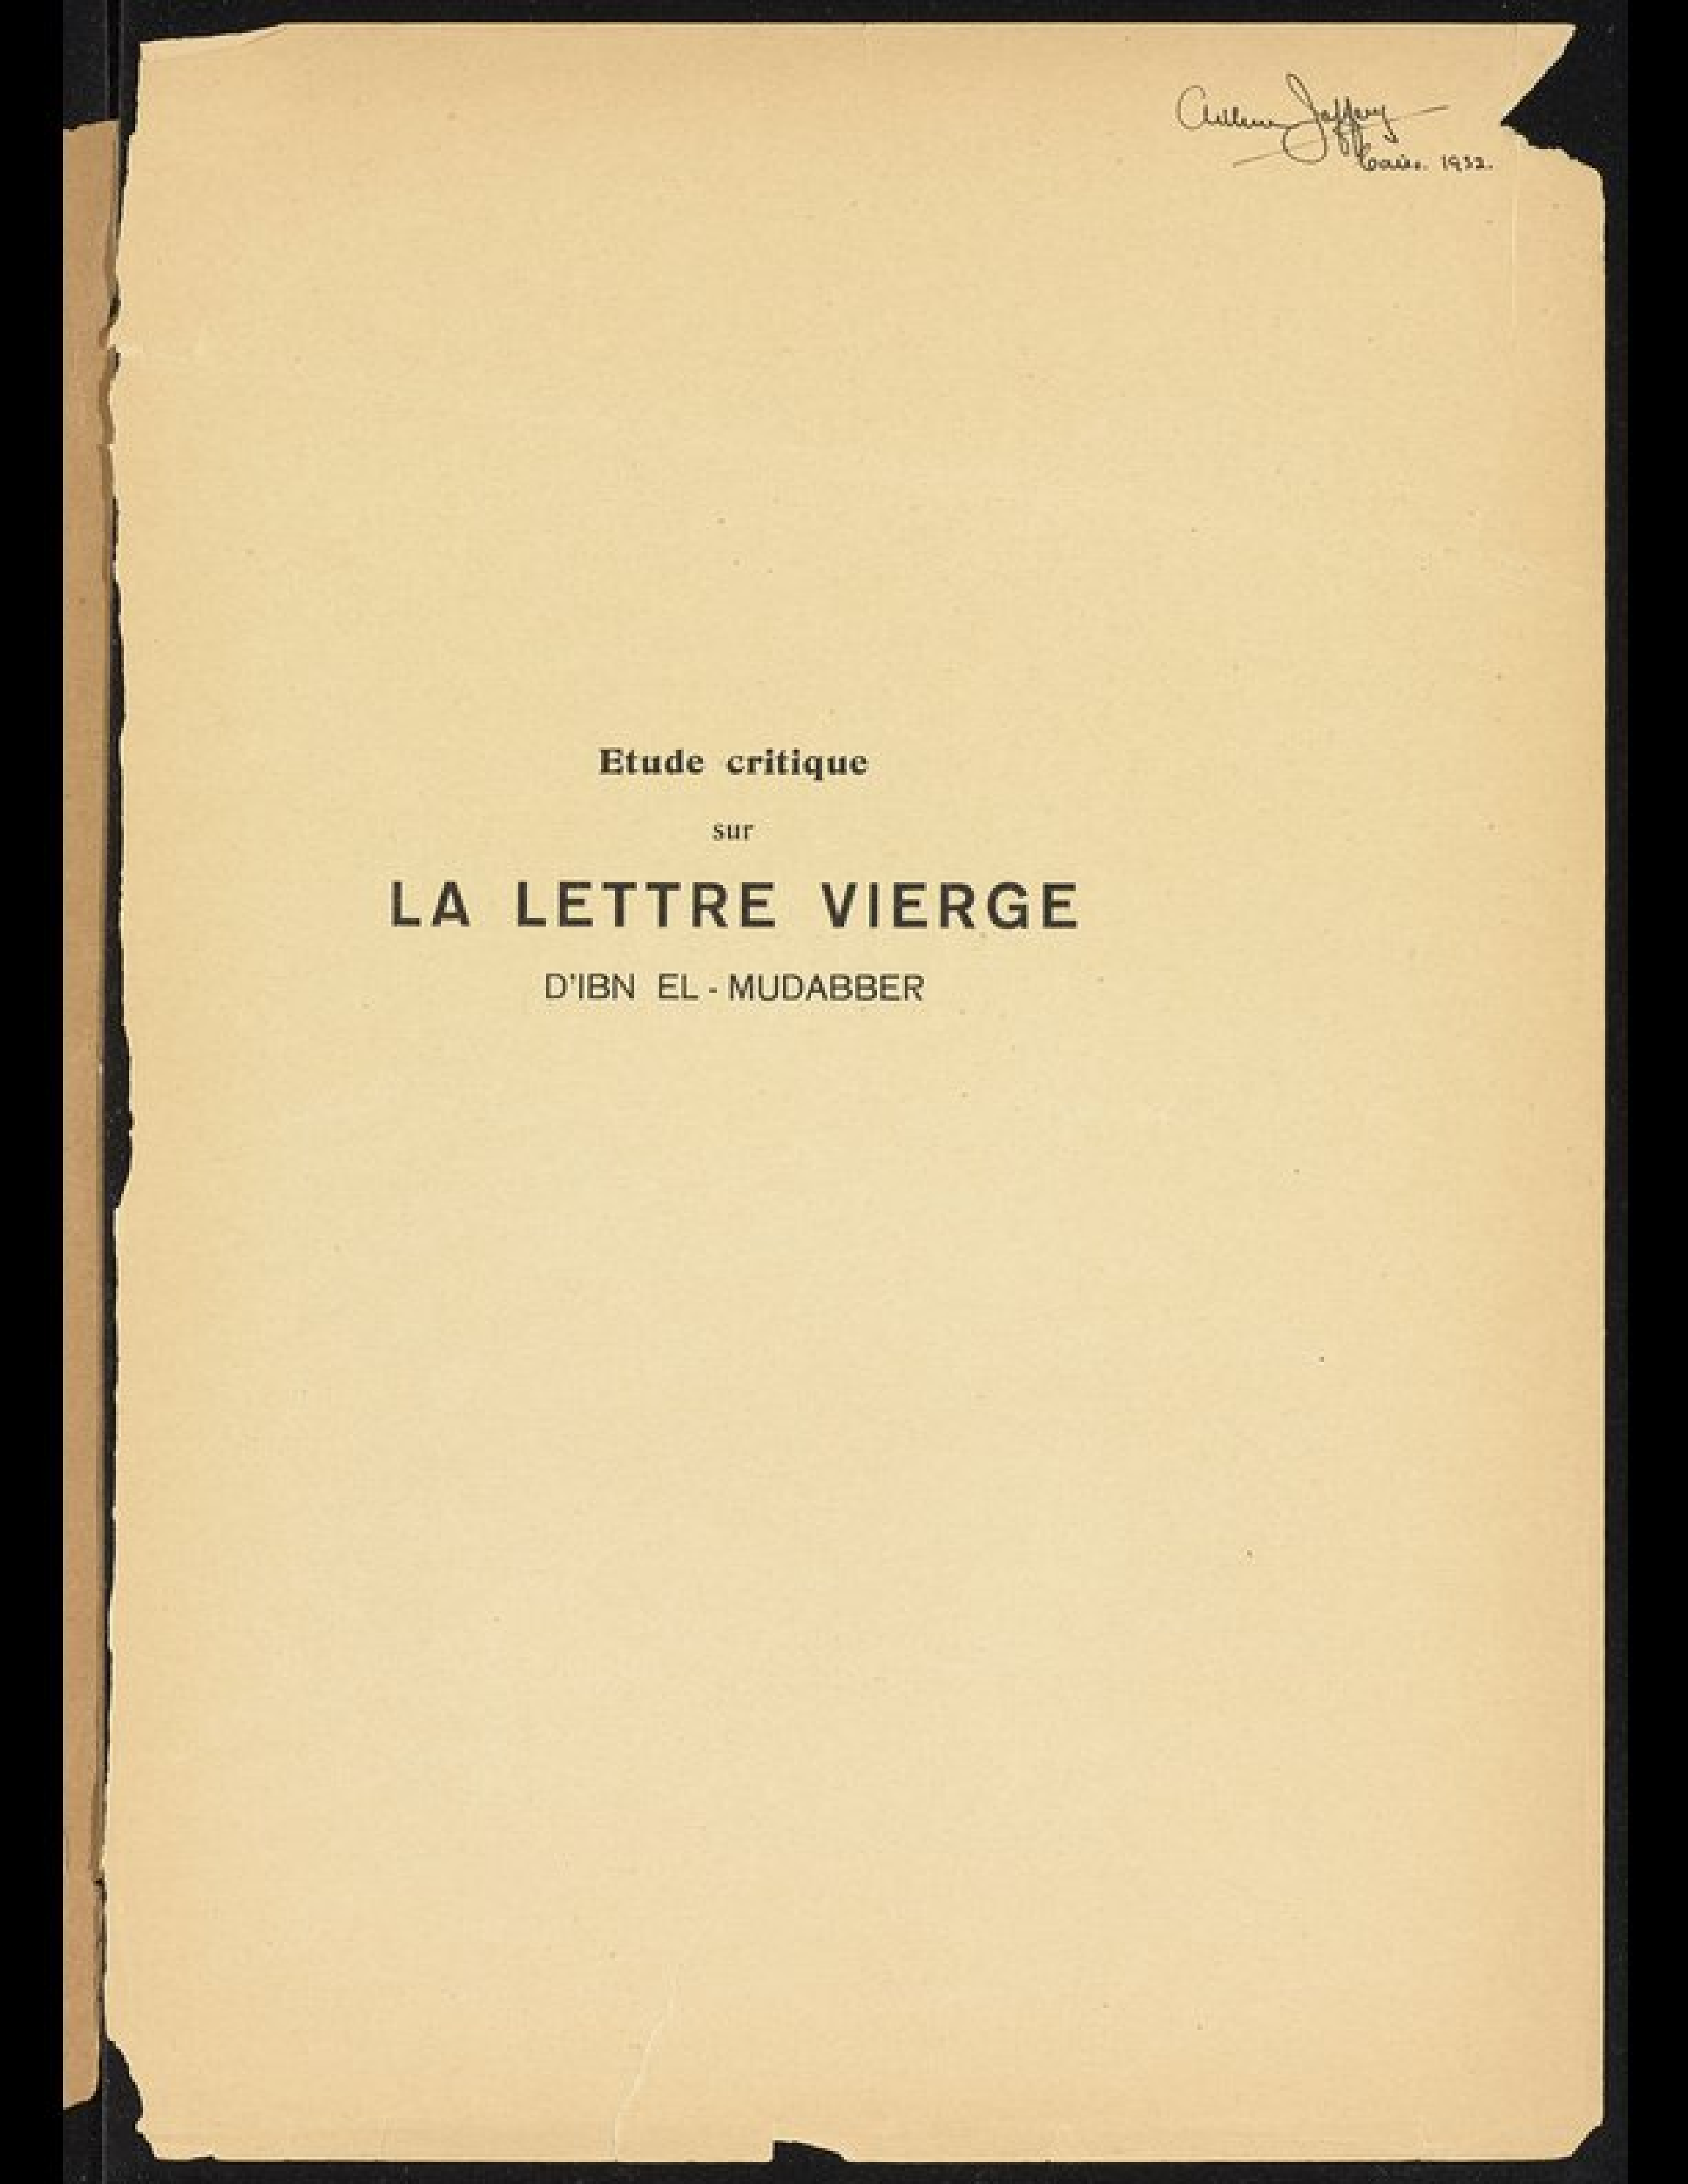 Arthur Jeffery
Cairo. 1932.
Etude critique
sur
LA LETTRE VIERGE
D'IBN EL - MUDABBER